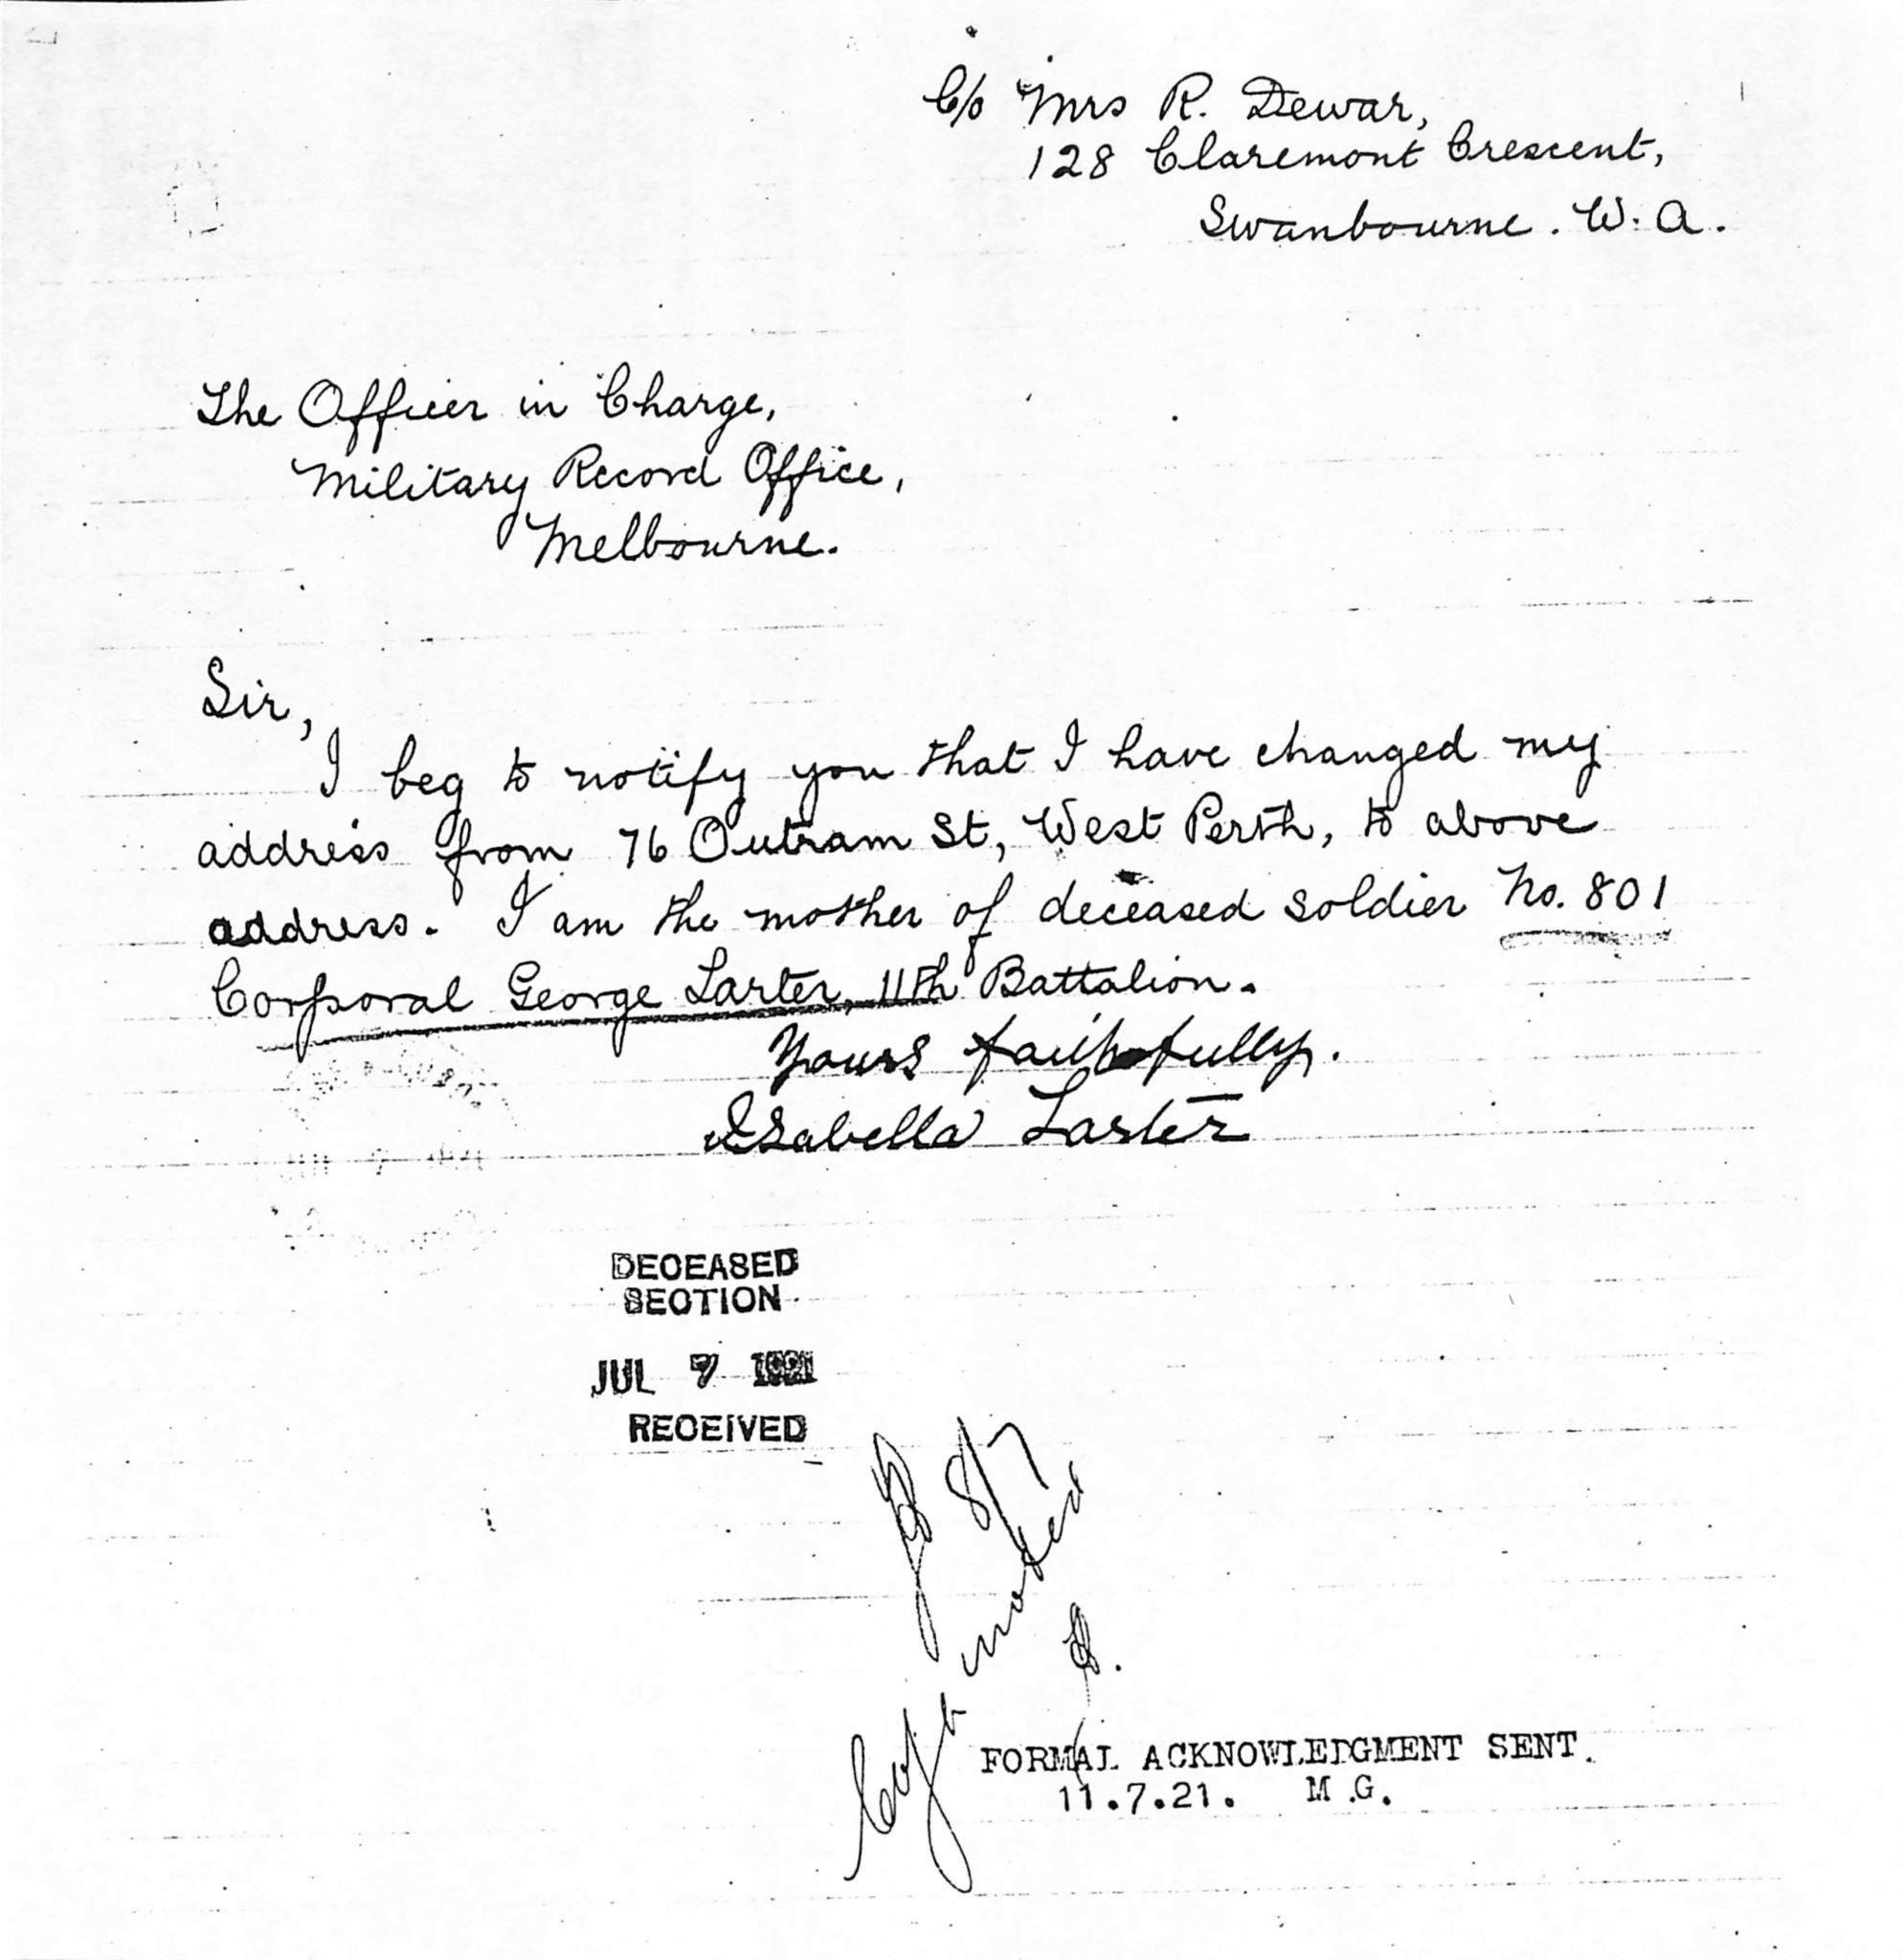 C/o Mrs R. Dewar,
128 Claremont Crescent,
Swanbourne. W. A.
The Officer in Charge,
Military Record Office,
Melbourne.
Sir,
I beg to notify you that I have changed my
address from 76 Outram St, West Perth, to above
address. I am the mother of deceased soldier No. 801
Corporal George Larter, 11th Battalion.
Yours faithfully.
Isabella Larter
DECEASED
SECTION
JUL 7 1921
RECEIVED
8/7
noted
FORMAL ACKNOWLEDGMENT SENT.
11.7.21. M.G.